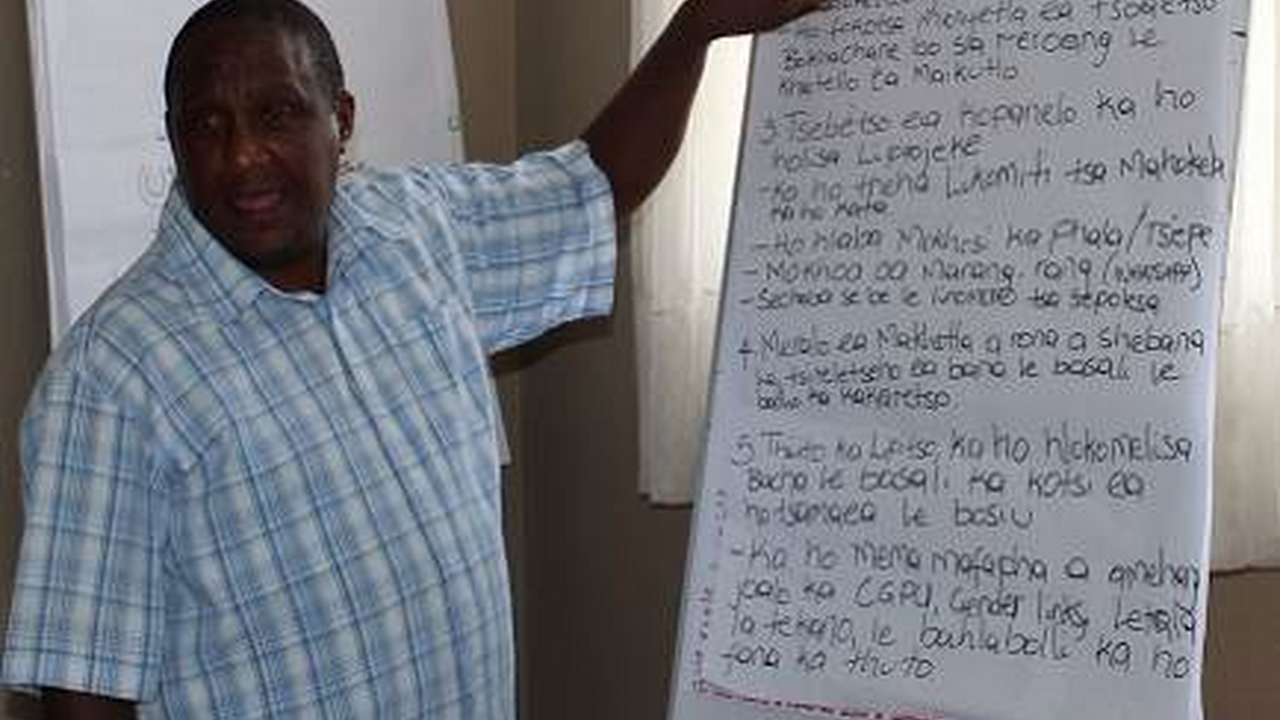 ea tsoeletso
Bakhachane ba sa meroang le
khatello ea Maikutlo
3. Tsebetso ea kopanelo ka ho
holisa Liprojeke
- Ko ho theha Likomiti tsa Mahokela
ka ho kata
- Ho hlaba Mokhosi ka Phala/Tsepe
- Mokhoa oa Marang-rang (WHATSAPP)
- Sechaba se be le linomoro tsa sepolesa
4. Meralo ea Makhotla a rona a shebang
ka tsireletseho ea bana le basali le
batho ka kakaretso.
5. Thuto ka Lipitso ka ho hlokomelisa
Bacha le basali ka kotsi ea
ho tsamaea le bosiu
- Ka ho mema mafapha a amehang
joalo ka CGPU, Gender links, Lekala
la tekano, le baahlaboli ka ho
fana ka thuto